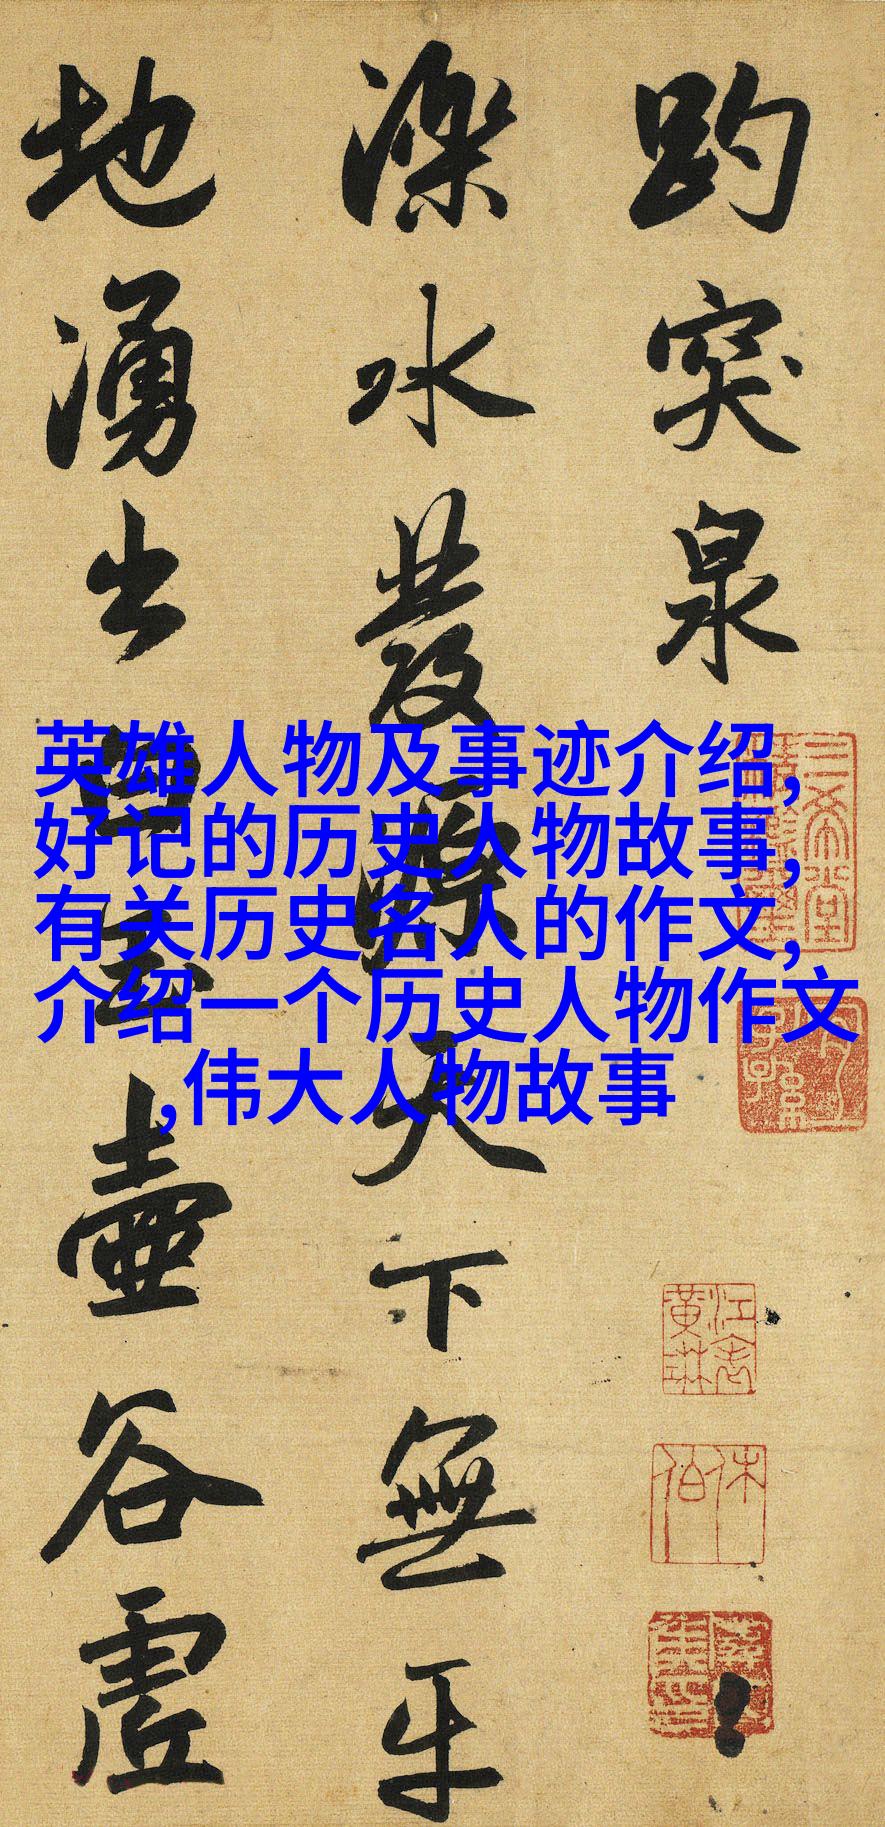 趵突泉
濼水發源天下無平
地湧出白玉壺谷虛
英雄人物及事迹介绍,
好记的历史人物故事,
有关历史名人的作文,
介绍一个历史人物作文
,伟大人物故事
三希堂精鑑璽
宜子孫
江表黃琳
休伯